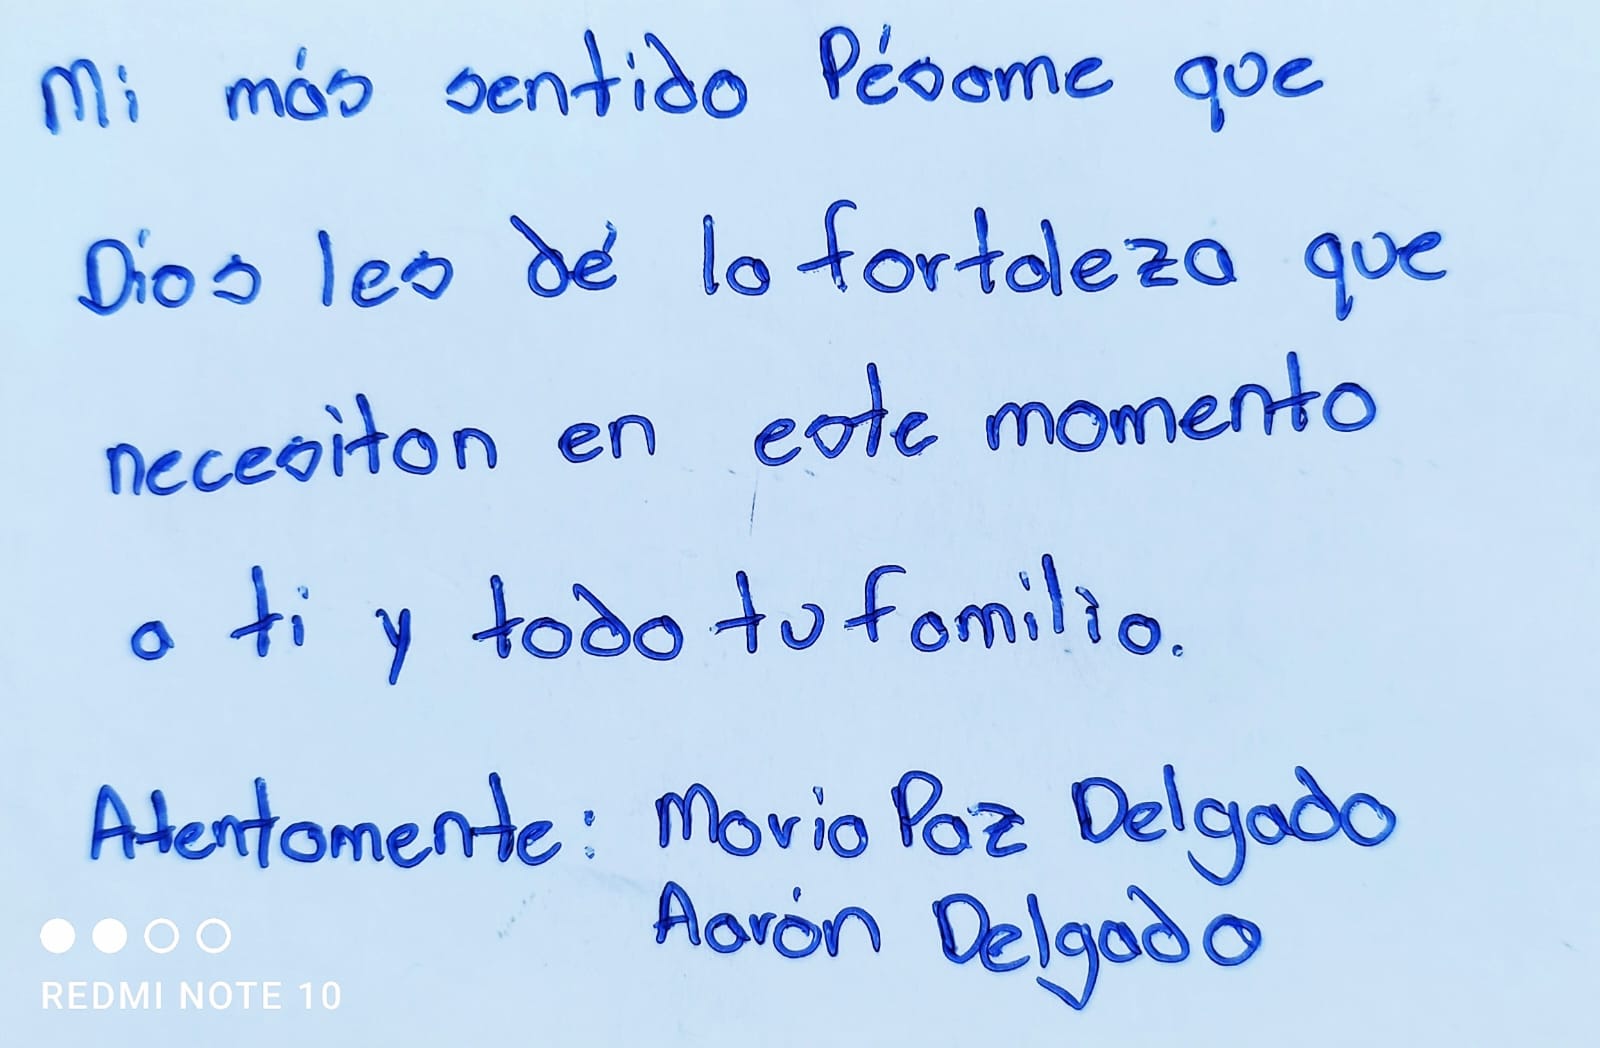 Mi más sentido Pésame que
Dios les dé la fortaleza que
necesitan en este momento
a ti y toda tu familia.
Atentamente: María Paz Delgado
Aarón Delgado
REDMI NOTE 10